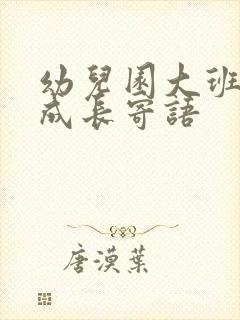 幼兒園大班
成長寄語
唐漠葉